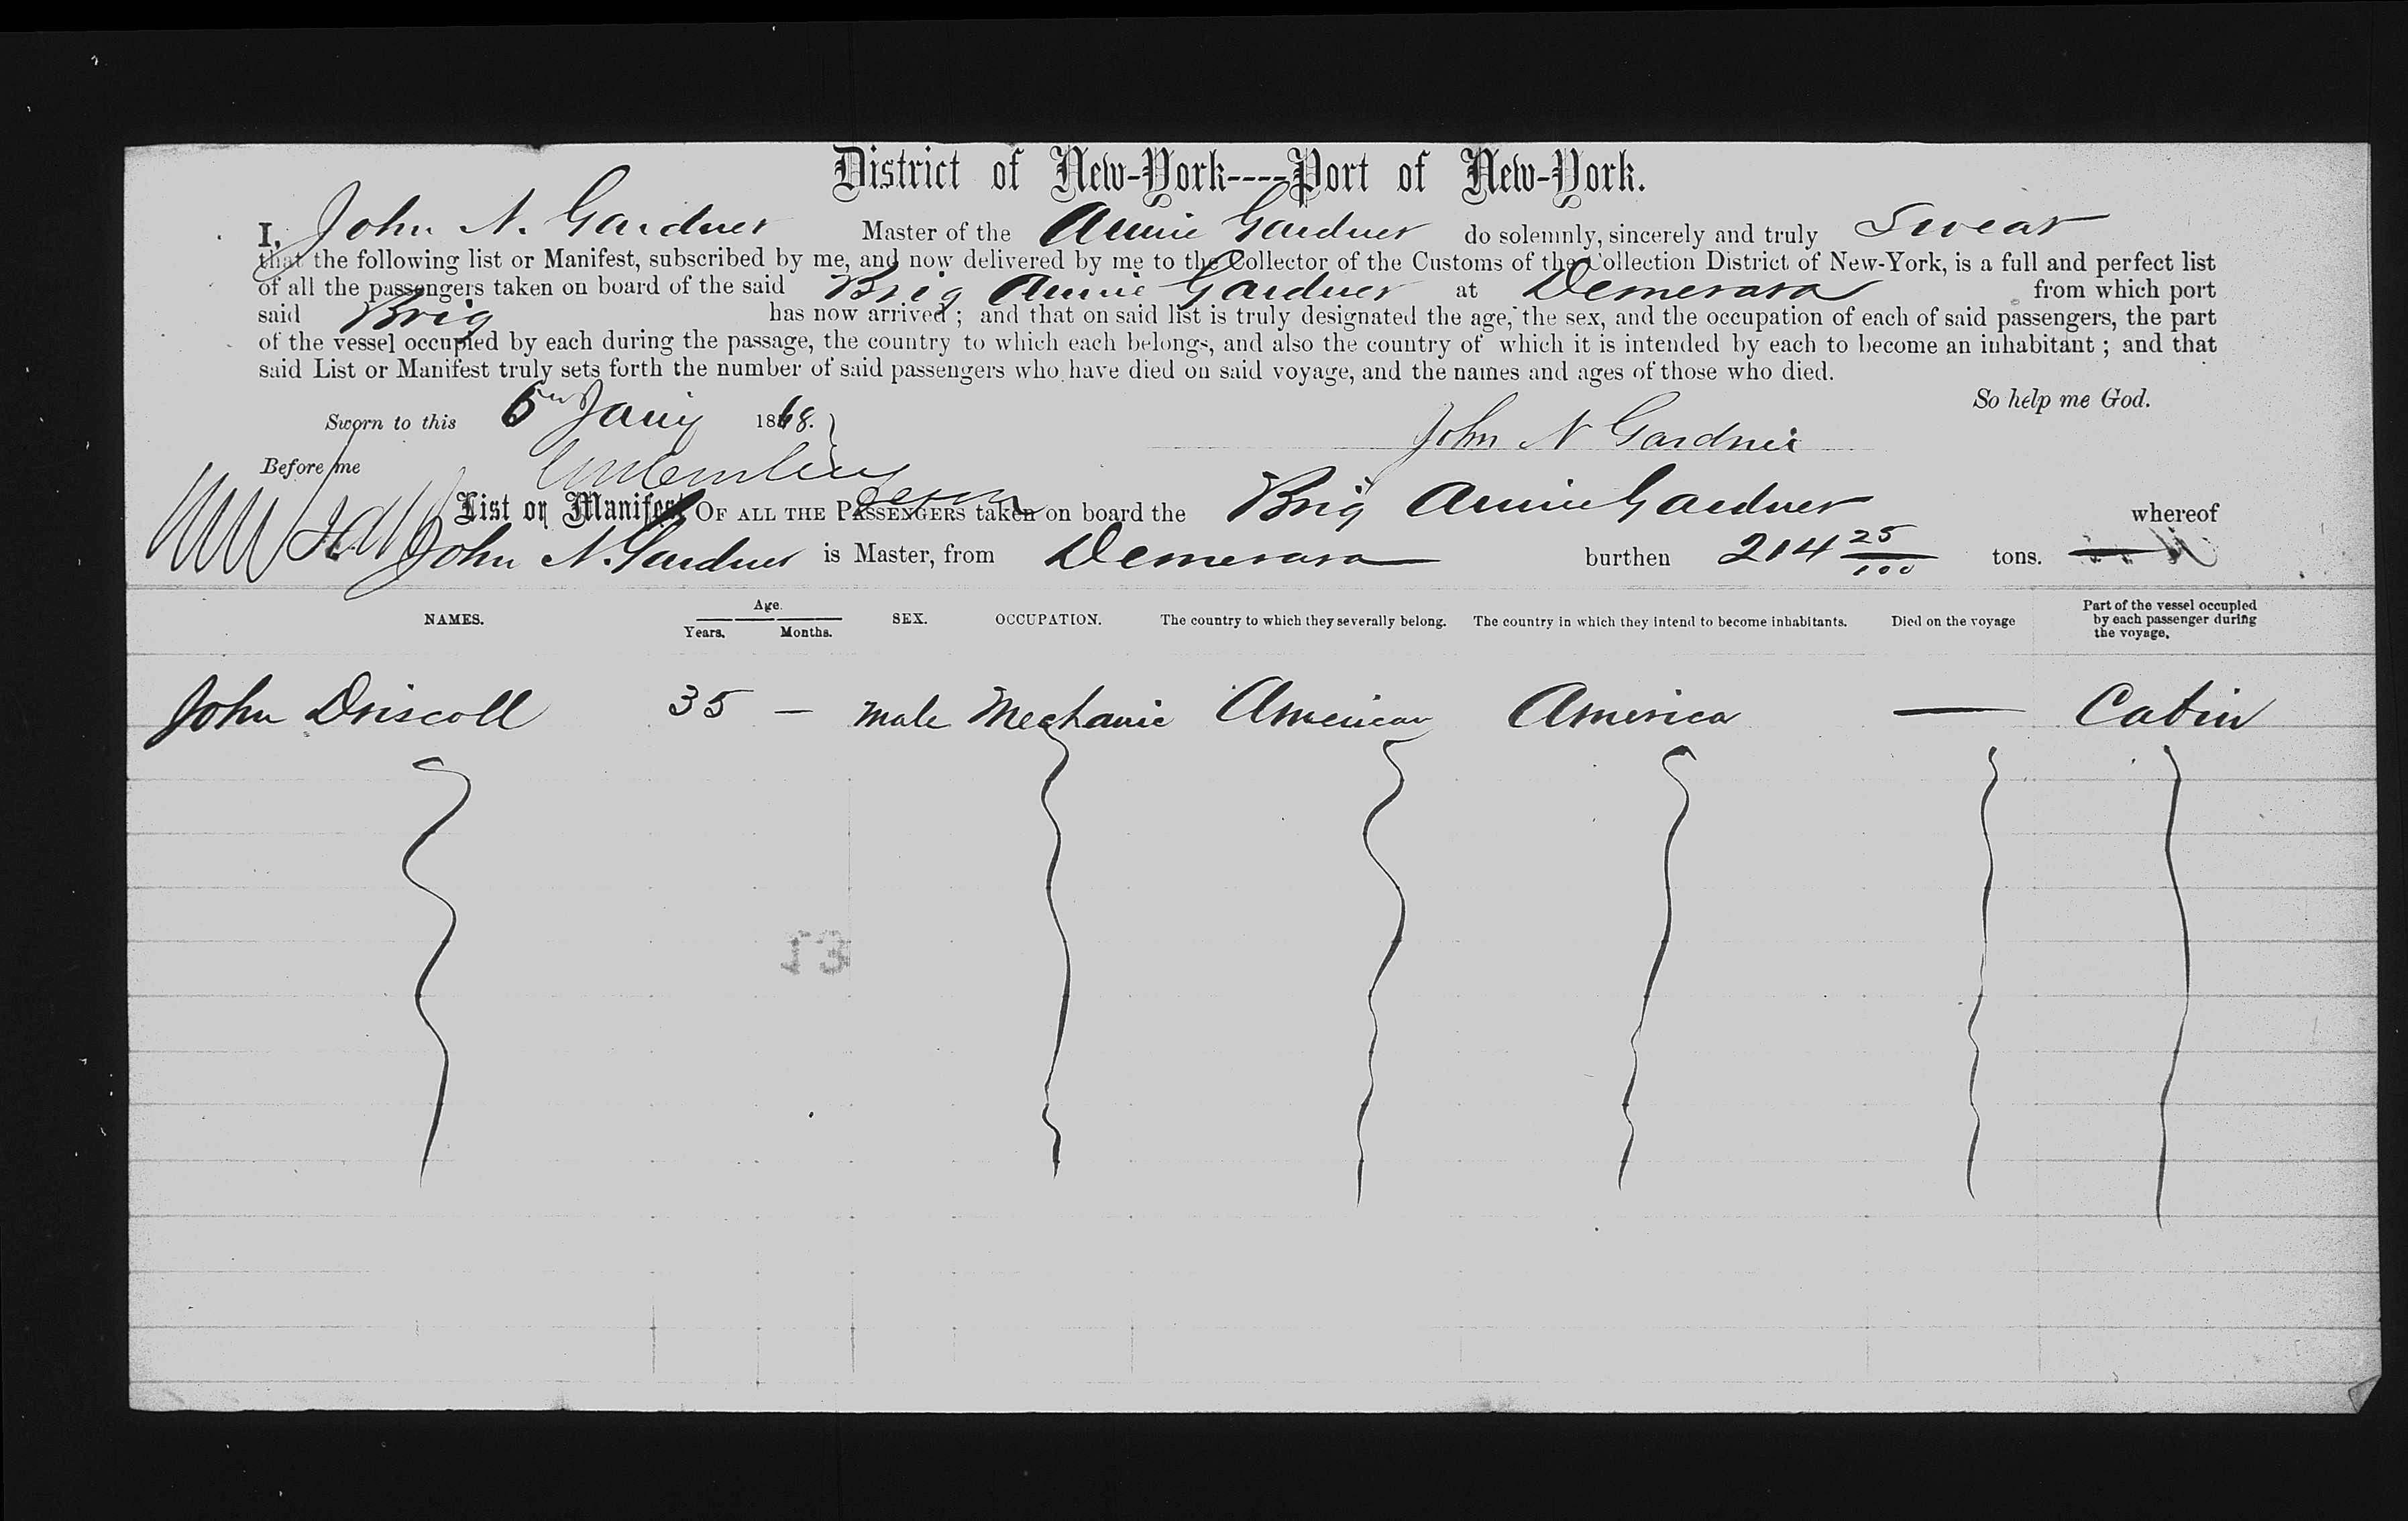 District of New-York----Port of New-York.
I, John N. Gardner Master of the Annie Gardner do solemnly, sincerely and truly Swear
that the following list or Manifest, subscribed by me, and now delivered by me to the Collector of the Customs of the Collection District of New-York, is a full and perfect list
of all the passengers taken on board of the said Brig Annie Gardner at Demerara from which port
said Brig has now arrived; and that on said list is truly designated the age, the sex, and the occupation of each of said passengers, the part
of the vessel occupied by each during the passage, the country to which each belongs, and also the country of which it is intended by each to become an inhabitant; and that
said List or Manifest truly sets forth the number of said passengers who have died on said voyage, and the names and ages of those who died.
So help me God.
Sworn to this 6th Jany 1868.
John N Gardner
Before me
List or Manifest OF ALL THE PASSENGERS taken on board the Brig Annie Gardner whereof
John N. Gardner is Master, from Demerara burthen 214 25/100 tons.
NAMES. Age. Years. Months. SEX. OCCUPATION. The country to which they severally belong. The country in which they intend to become inhabitants. Died on the voyage Part of the vessel occupied by each passenger during the voyage.
John Driscoll 35 — male Mechanic American America — Cabin
13